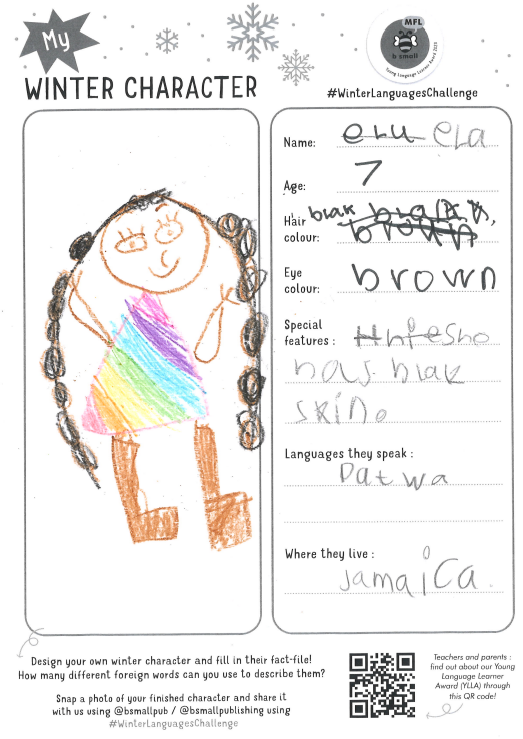 My
WINTER CHARACTER
MFL
b small
Young Language Learner Award 2020
#WinterLanguagesChallenge
Name: ela
Age: 7
Hair colour: blak
Eye colour: brown
Special features : sho
has blak
skin.
Languages they speak :
Patwa
Where they live :
jamaica.
Design your own winter character and fill in their fact-file!
How many different foreign words can you use to describe them?
Snap a photo of your finished character and share it
with us using @bsmallpub / @bsmallpublishing using
#WinterLanguagesChallenge
Teachers and parents :
find out about our Young
Language Learner
Award (YLLA) through
this QR code!